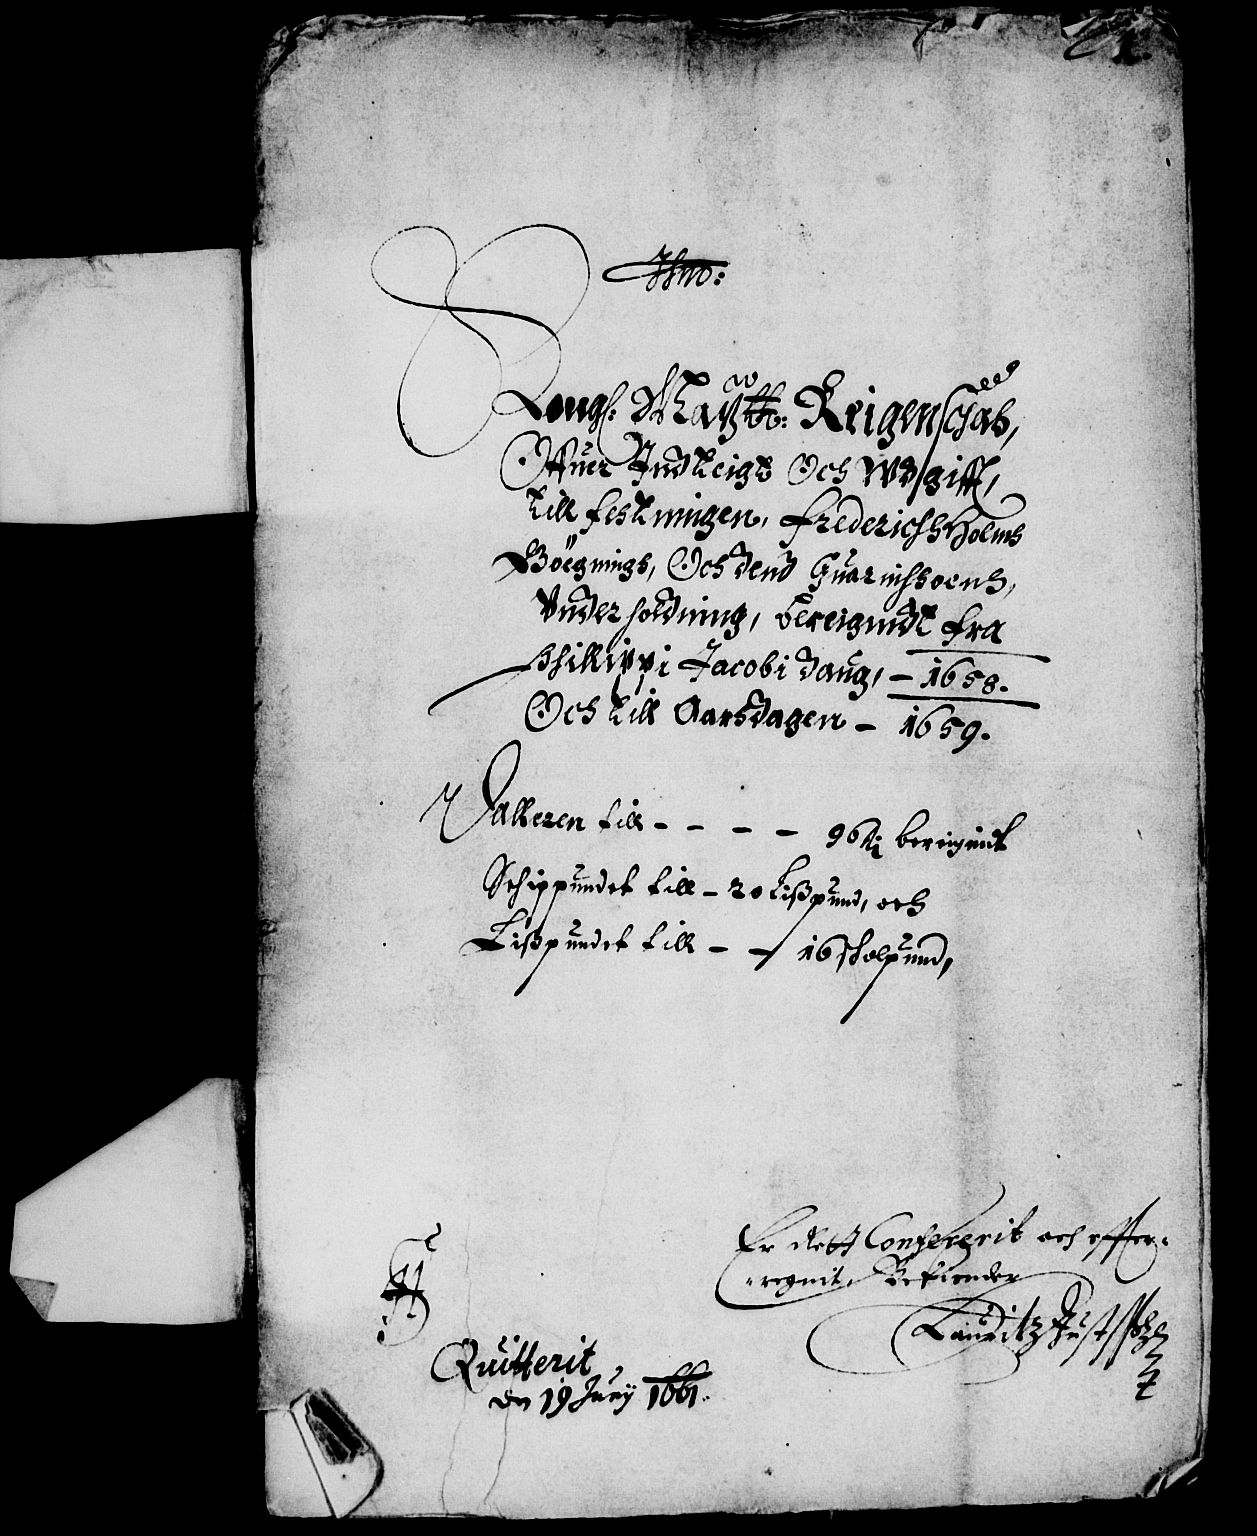 Jhuo:
Kongl: Maÿttz: Reigenschab,
Offuer Indteigt Och Wdgifft,
till festningen, Frederichsholms
Böegnings, Och dend Guarnihsoens,
Vnderholdning, bereignidt fra
Philippi Jacobi daug, – 1658.
Och till Aarsdagen – 1659.
Dalleren till – – – – 96 bereignit
Schippundet till – 20 Lißpund, och
Lißpundet till – – 16 skolpund,
Er dett Confererit och effter-
regnit, Bekiender
Lauritz Justs
Quitterit
den 19 Junÿ 1661.